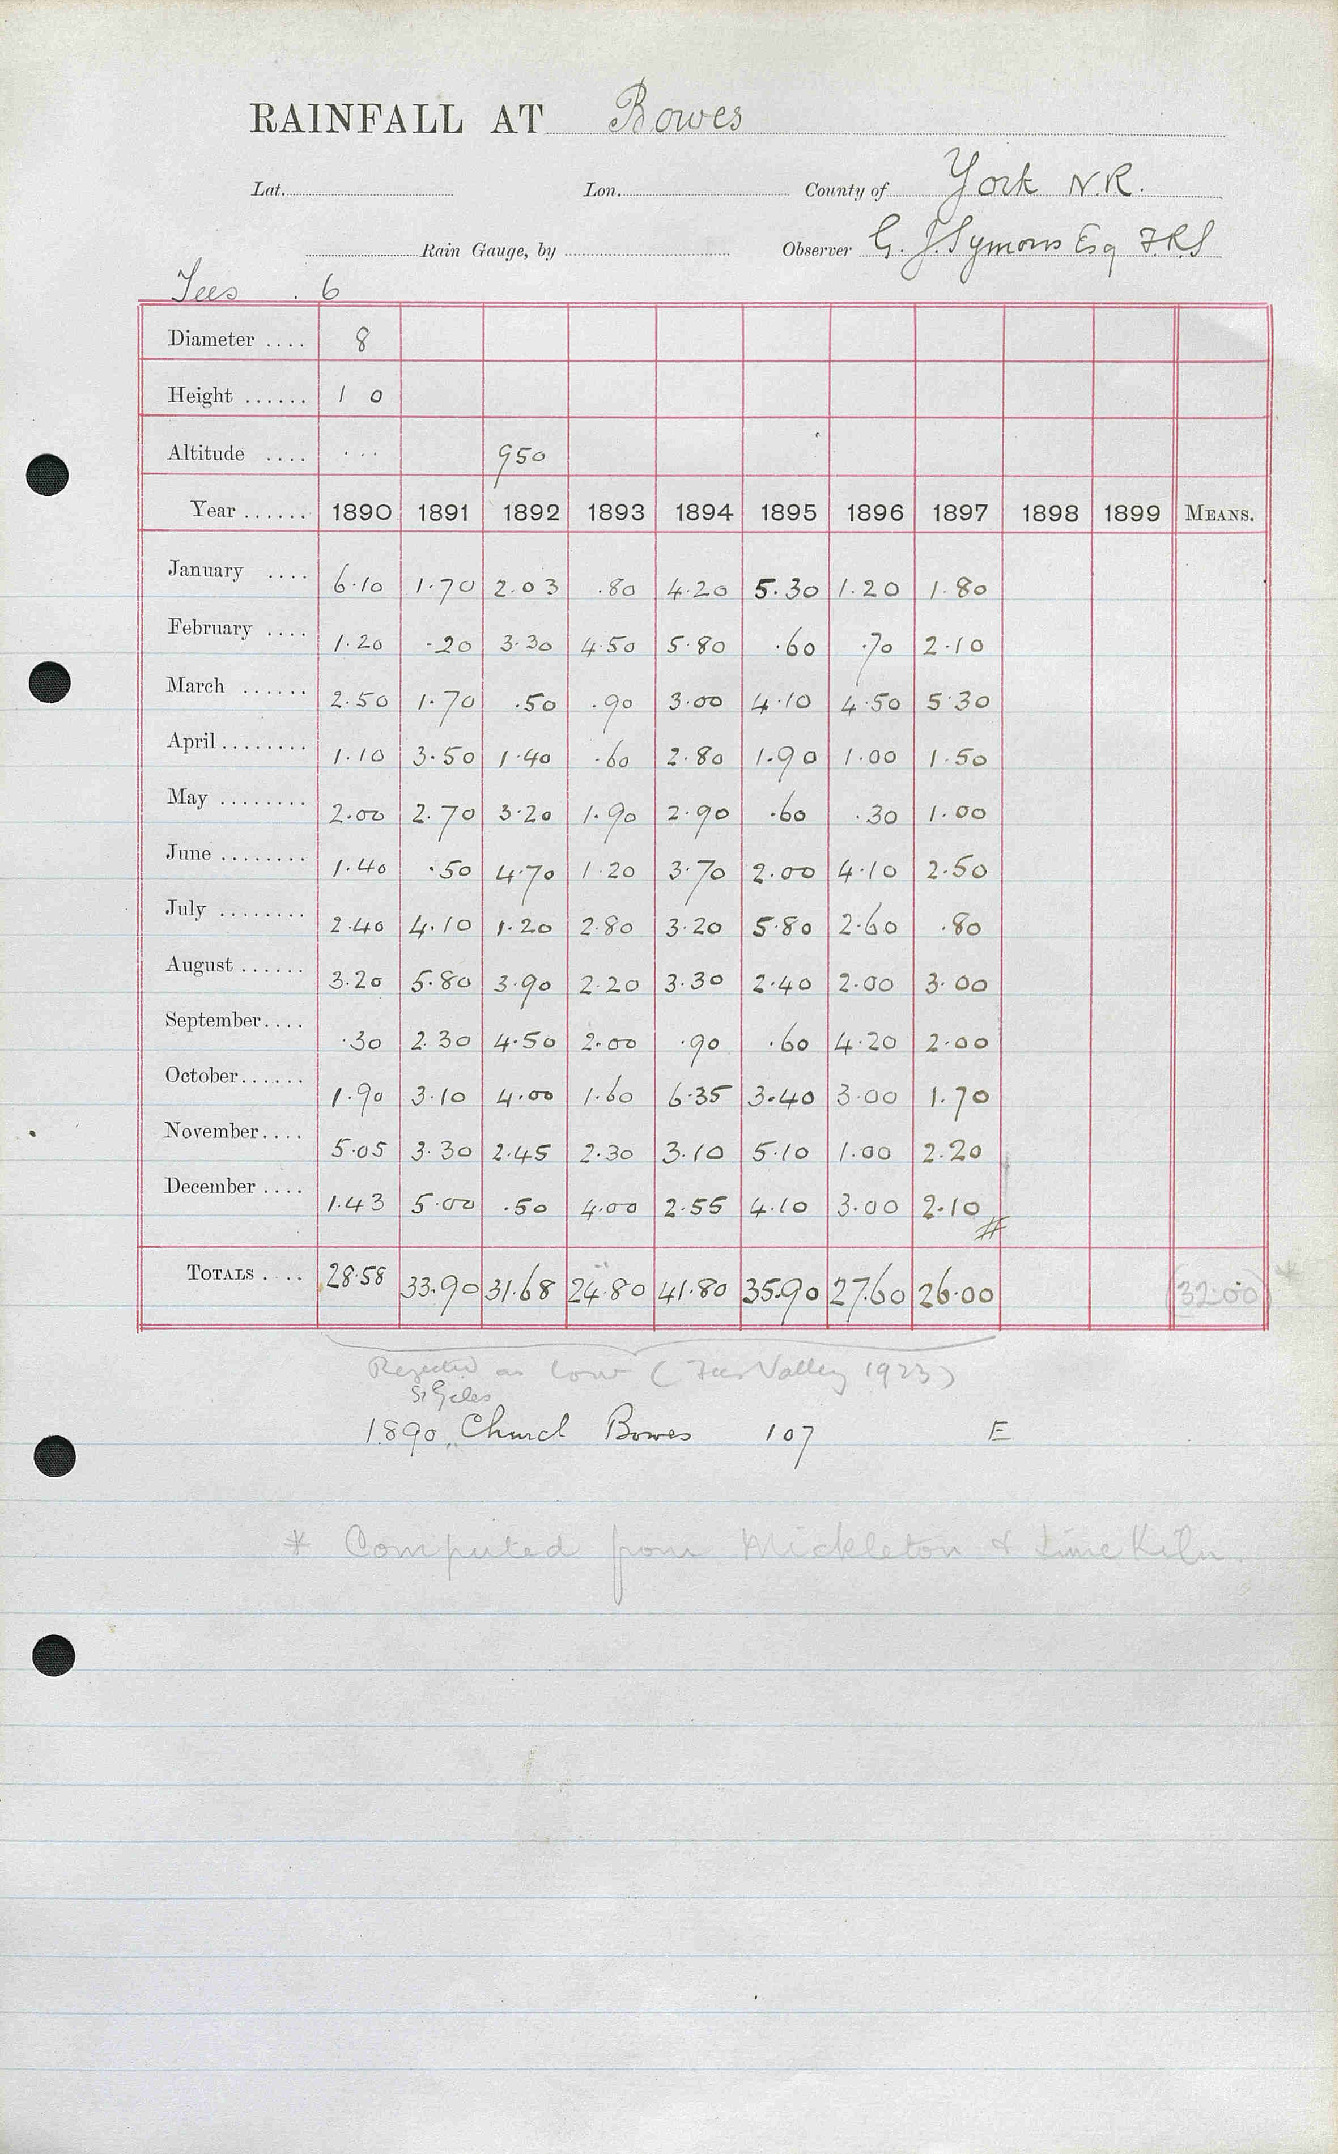 RAINFALL AT Bowes
Lat. Lon. County of York N.R.
Rain Gauge, by Observer G. J. Symons Esq F.R.S
Tees . 6
Diameter .... 8
Height ...... 1 0
Altitude .... ... 950
Year ...... 1890 1891 1892 1893 1894 1895 1896 1897 1898 1899 MEANS.
January .... 6.10 1.70 2.03 .80 4.20 5.30 1.20 1.80
February .... 1.20 .20 3.30 4.50 5.80 .60 .70 2.10
March ...... 2.50 1.70 .50 .90 3.00 4.10 4.50 5.30
April ........ 1.10 3.50 1.40 .60 2.80 1.90 1.00 1.50
May ........ 2.00 2.70 3.20 1.90 2.90 .60 .30 1.00
June ........ 1.40 .50 4.70 1.20 3.70 2.00 4.10 2.50
July ........ 2.40 4.10 1.20 2.80 3.20 5.80 2.60 .80
August ...... 3.20 5.80 3.90 2.20 3.30 2.40 2.00 3.00
September .... .30 2.30 4.50 2.00 .90 .60 4.20 2.00
October ...... 1.90 3.10 4.00 1.60 6.35 3.40 3.00 1.70
November .... 5.05 3.30 2.45 2.30 3.10 5.10 1.00 2.20
December .... 1.43 5.00 .50 4.00 2.55 4.10 3.00 2.10 #
TOTALS .... 28.58 33.90 31.68 24.80 41.80 35.90 27.60 26.00 (32.00) *
Rejected as low (Tees Valley 1923)
St Giles
1890 Church Bowes 107 E
* Computed from Mickleton & Lime Kiln.